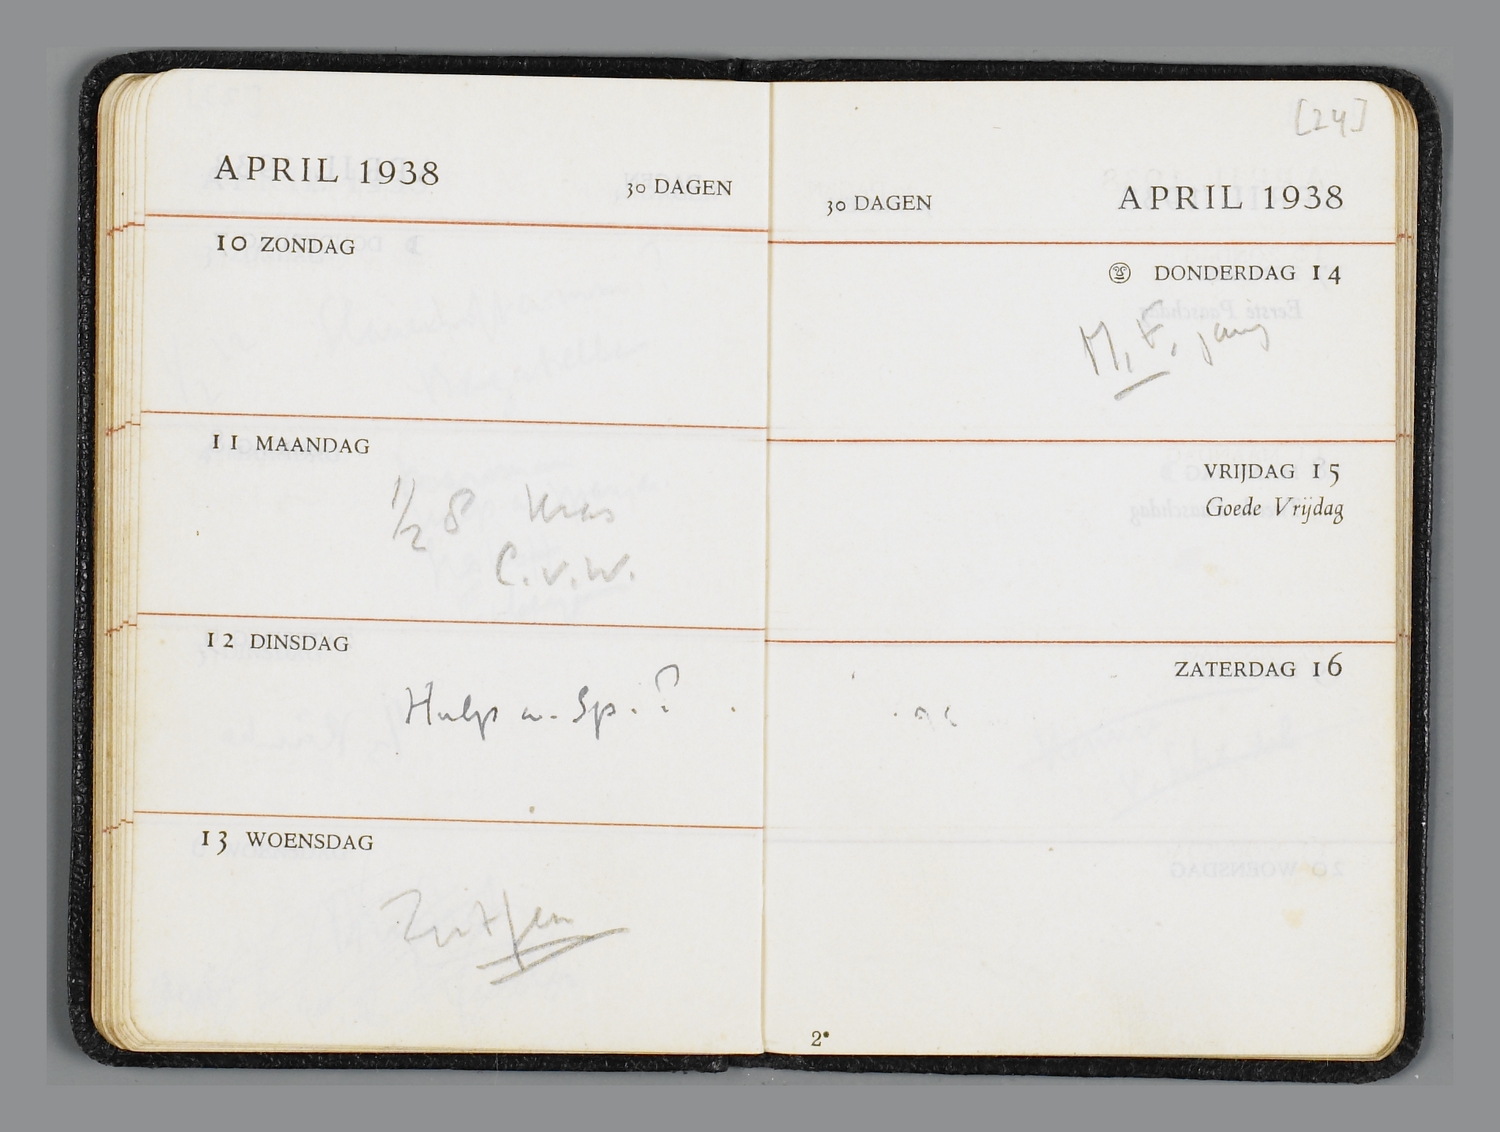 APRIL 1938
30 DAGEN
10 ZONDAG
11 MAANDAG
½ 8 Kras
C.v.W.
12 DINSDAG
Hulp a. Sp.?
13 WOENSDAG
Zutfen
[24]
30 DAGEN
APRIL 1938
DONDERDAG 14
M. F. jarig
VRIJDAG 15
Goede Vrijdag
ZATERDAG 16
2*